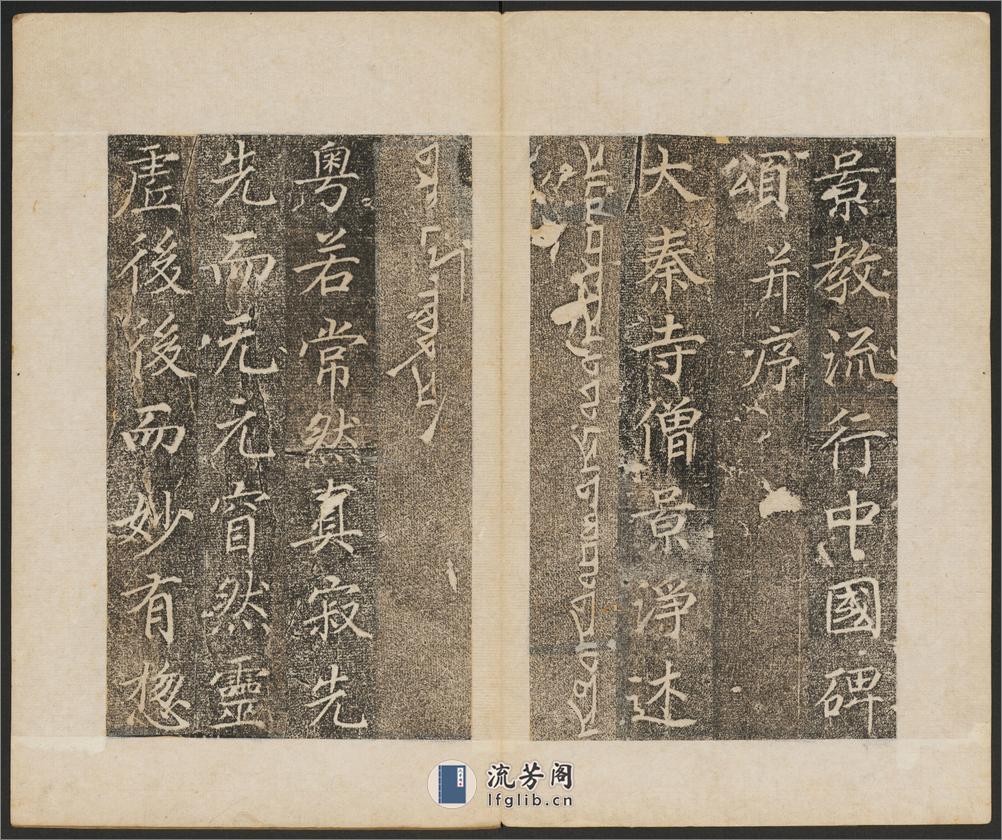 景教流行中國碑
頌并序
大秦寺僧景淨述
粵若常然真寂先
先而无元窅然靈
虛後後而妙有惣
流芳阁
lfglib.cn